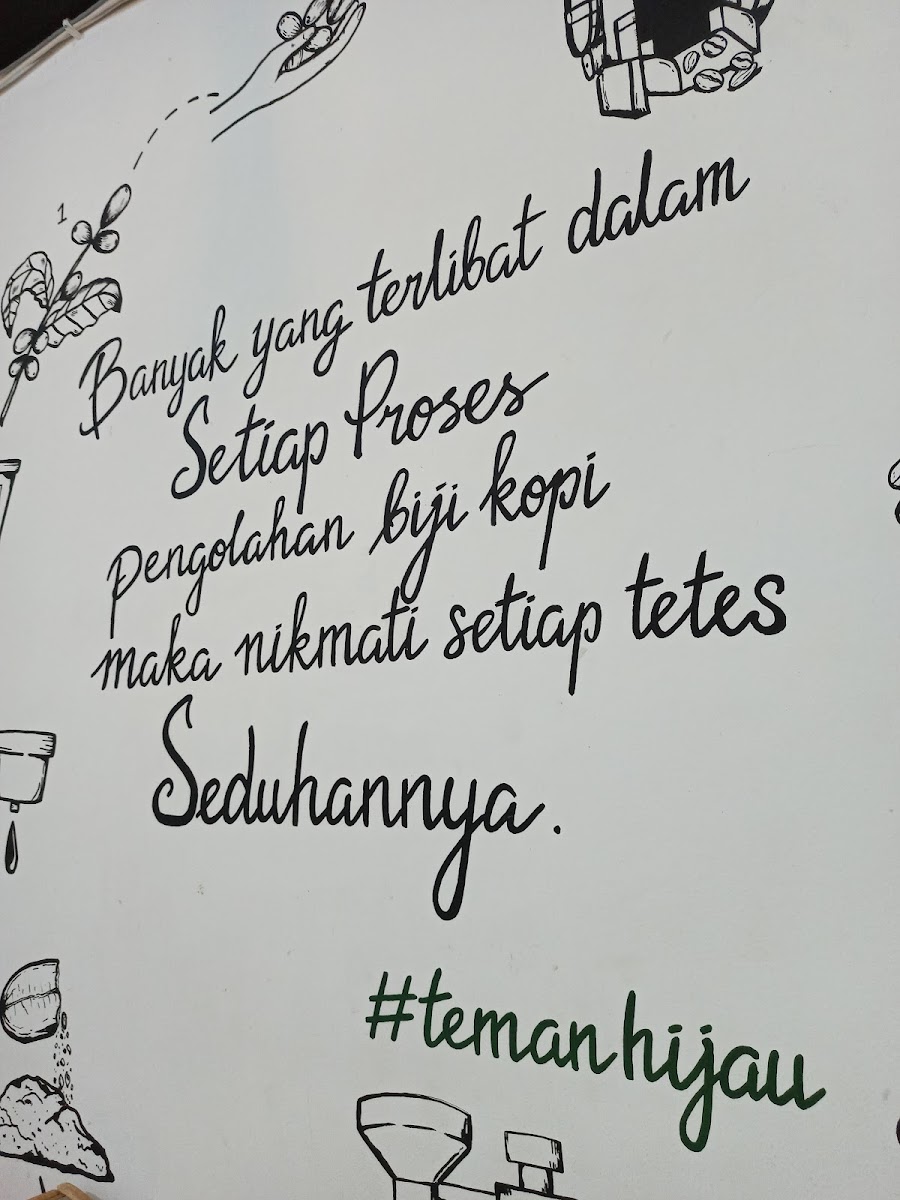 1
Banyak yang terlibat dalam
Setiap Proses
pengolahan biji kopi
maka nikmati setiap tetes
Seduhannya.
#temanhijau